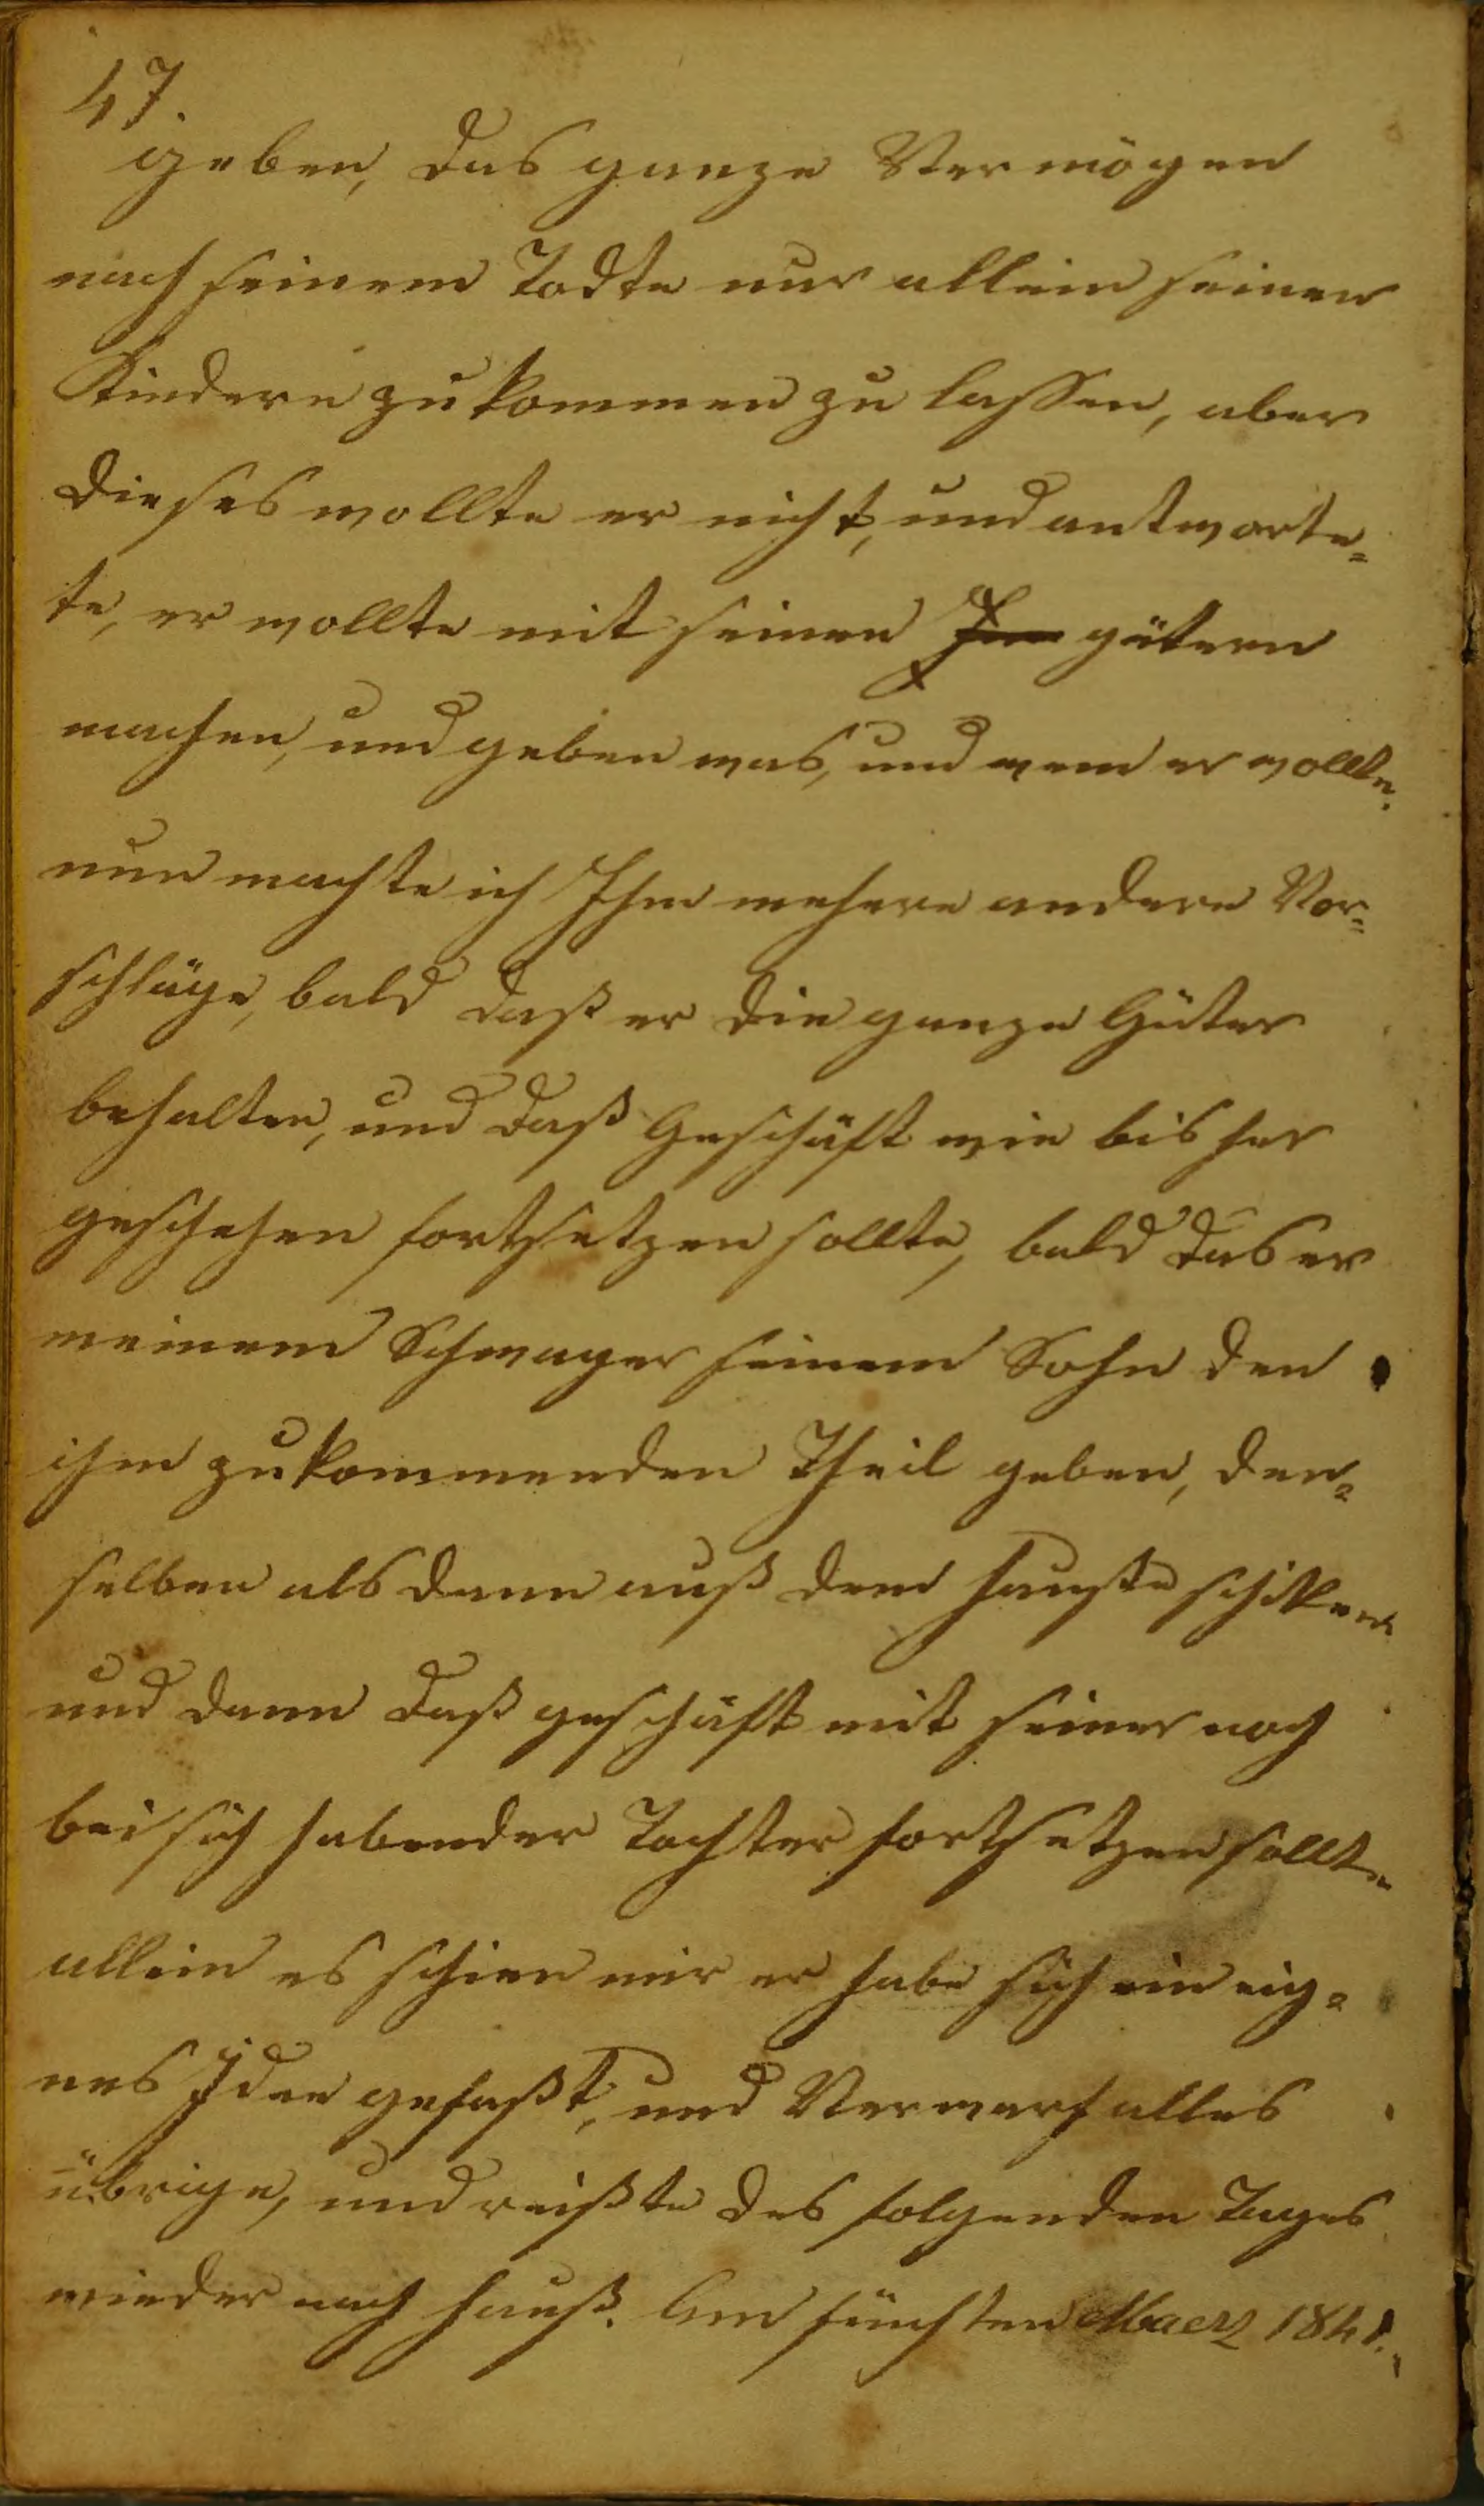 47.
geben, das ganze Vermögen
nach seinem Todte nur allein seinen
Kindern zukommen zu lassen, aber
dieses wollte er nicht, und antworte¬
te, er wollte mit seinen gütern
machen, und geben was, und wem er wollte.
nun machte ich Ihm mehere andere Vor¬
schläge, bald daß er die ganze Güter
behalten, und daß Geschäft wie bisher
geschehen fortsetzen sollte, bald das er
meinem Schwager seinem Sohn den
ihm zukommenden Theil geben, den¬
selben als dann auß dem hauße schiken
und dann daß geschäft mit seiner noch
bei sich habender Tochter fortsetzen sollte
allein es schien mir er habe sich ein eig¬
nes Idee gefaßt, und Verwarf alles
übrige, und reißte des folgenden Tages
wieder nach hauß. Am fünften Maerz 1841.